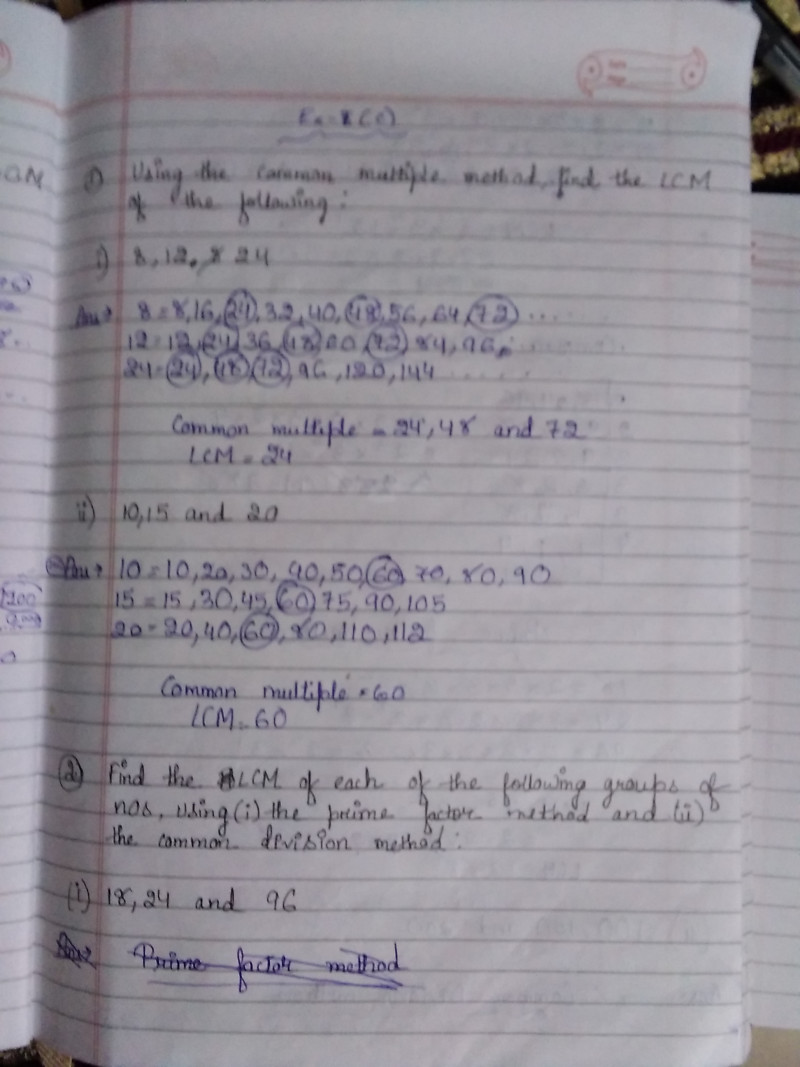 Ex-8(C)
1) Using the common multiple method, find the LCM
of the following:
i) 8, 12, & 24
Ans→ 8 = 8,16, 24, 32, 40, 48, 56, 64, 72 ....
12 = 12, 24, 36, 48, 60, 72, 84, 96,
24 = 24, 48, 72, 96, 120, 144 .....
Common multiple = 24, 48 and 72
LCM = 24
ii) 10,15 and 20
Ans→ 10 = 10, 20, 30, 40, 50, 60, 70, 80, 90
15 = 15, 30, 45, 60, 75, 90, 105
20 = 20, 40, 60, 80, 110, 112
Common multiple = 60
LCM = 60
2) Find the LCM of each of the following groups of
nos, using (i) the prime factor method and (ii)
the common devision method:
(i) 18, 24 and 96
Ans→ Prime factor method